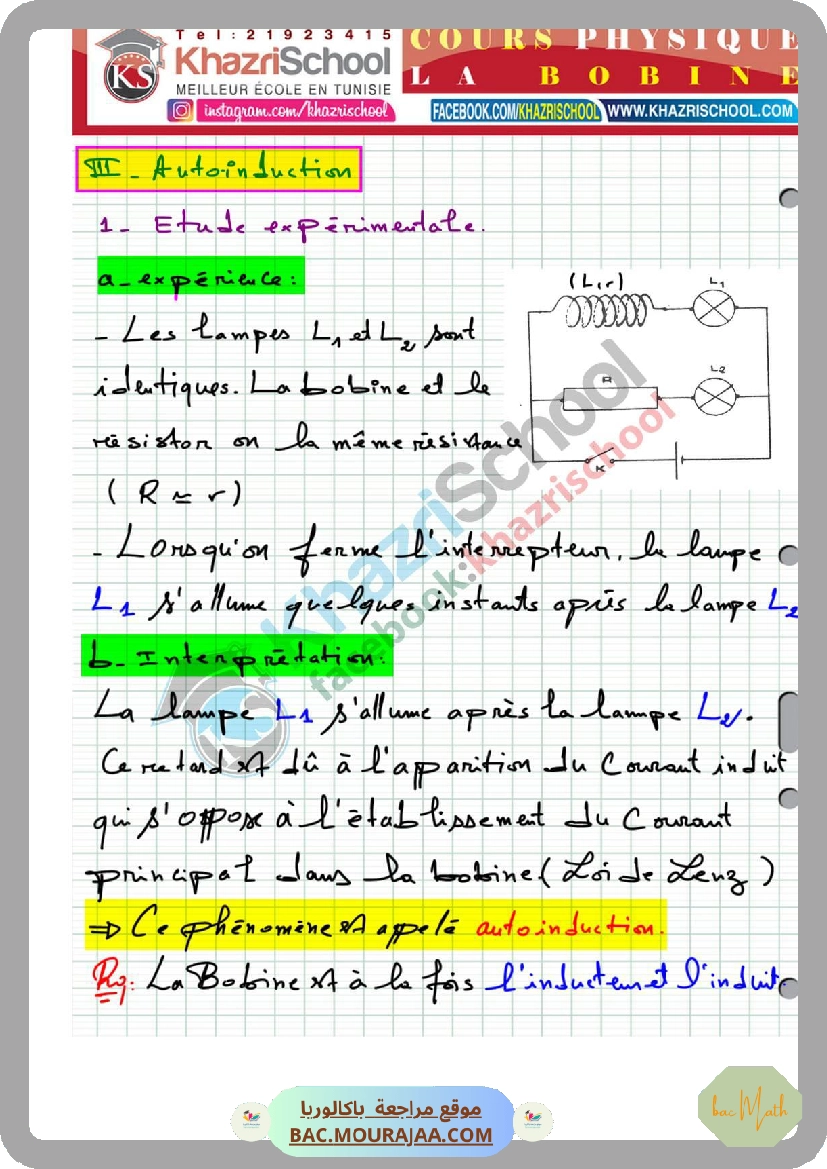 Tel:21923415
KhazriSchool
MEILLEUR ÉCOLE EN TUNISIE
KS
COURS PHYSIQUE
LA BOBINE
instagram.com/khazrischool
FACEBOOK.COM/KHAZRISCHOOL
WWW.KHAZRISCHOOL.COM
III - Autoinduction
1- Etude expérimentale.
a- expérience:
(L,r)
L1
R
L2
K
- Les lampes L1 et L2 sont
identiques. La bobine et le
résistor on la même résistance
( R ≃ r)
- Lorsqu'on ferme l'interrepteur, la lampe
L1 s'allume quelques instants après la lampe L2
b- Interprétation:
La lampe L1 s'allume après la lampe L2.
Ce retard est dû à l'apparition du courant induit
qui s'oppose à l'établissement du courant
principal dans la bobine (Loi de Lenz)
⇒ Ce phénomène est appelé autoinduction.
Rq: La Bobine est à la fois l'inducteur et l'induit.
KhazriSchool
facebook:khazrischool
KS
موقع مراجعة باكالوريا
BAC.MOURAJAA.COM
bac Math